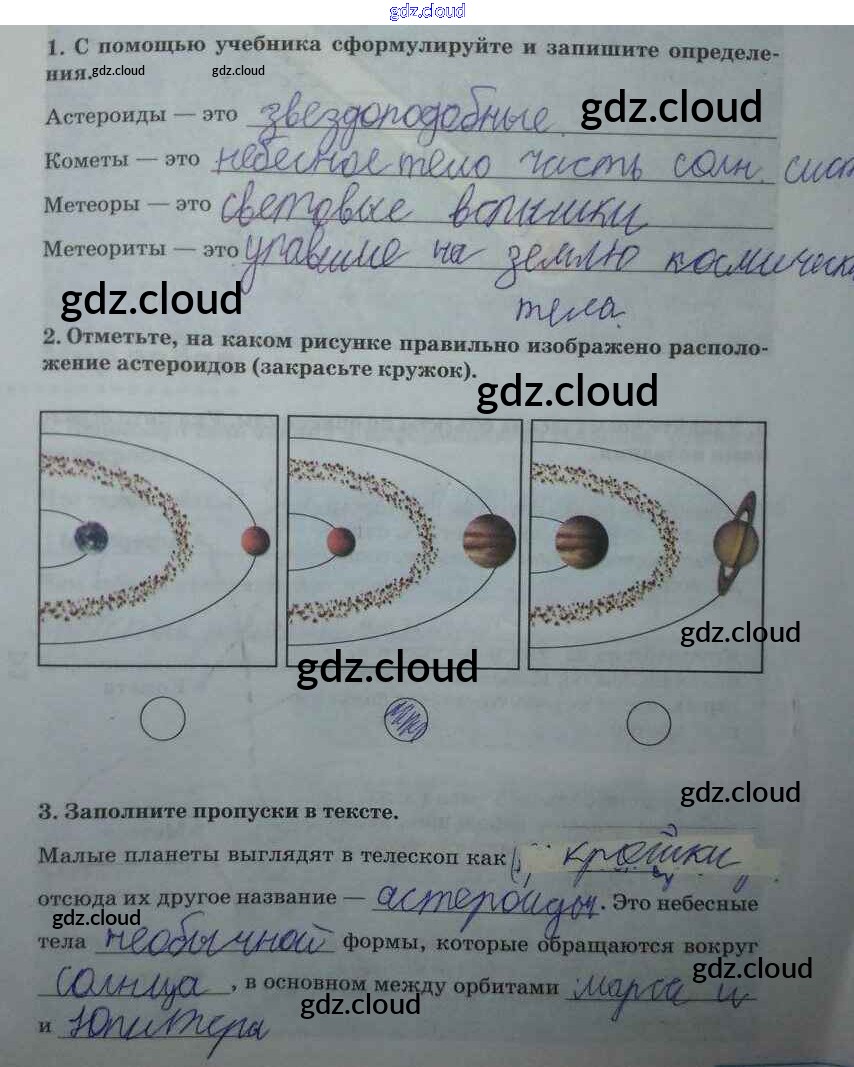 gdz.cloud
1. С помощью учебника сформулируйте и запишите определе-
ния. gdz.cloud gdz.cloud
Астероиды — это звездоподобные. gdz.cloud
Кометы — это небесное тело часть солн. сист
Метеоры — это световые вспышки
Метеориты — это упавшие на землю космически
gdz.cloud
тела.
2. Отметьте, на каком рисунке правильно изображено располо-
жение астероидов (закрасьте кружок).
gdz.cloud
gdz.cloud
gdz.cloud
gdz.cloud
3. Заполните пропуски в тексте.
Малые планеты выглядят в телескоп как крошки
отсюда их другое название — астероиды. Это небесные
gdz.cloud
тела необычной формы, которые обращаются вокруг
gdz.cloud
солнца, в основном между орбитами марса и
gdz.cloud
и Юпитера